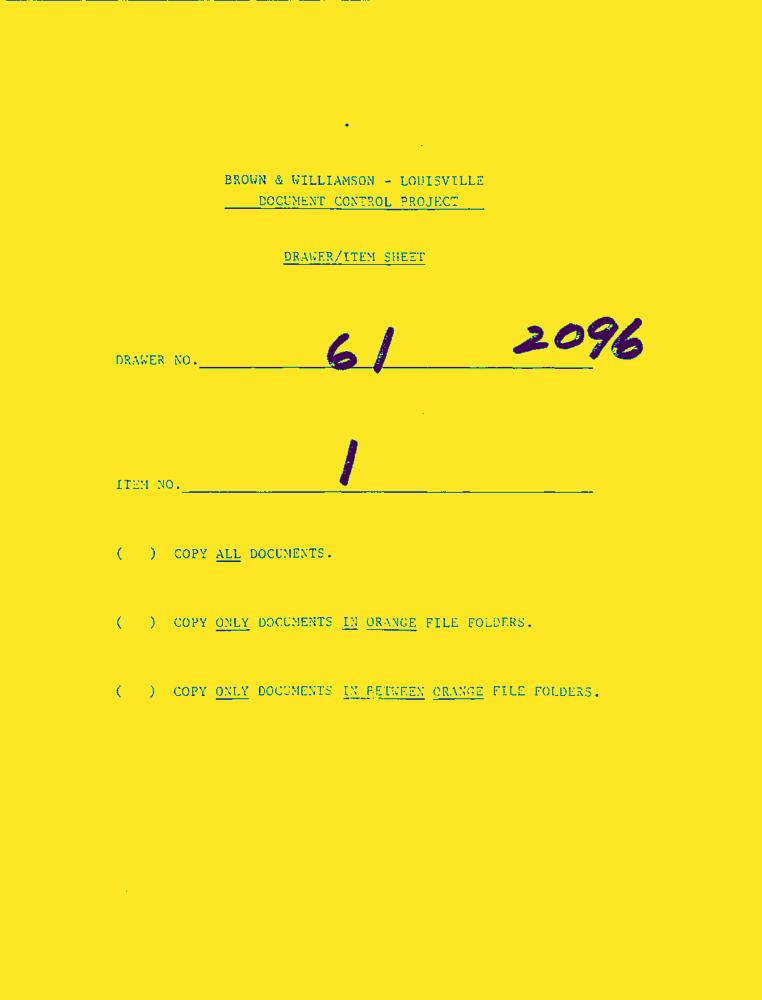 BROWN & WILLIAMSON - LOUISVILLE
DOCUMENT CONTROL PROJECT
DRAWER/ITEM SHEET
DRAWER NO. 61 2096
ITEM NO. 1
( ) COPY ALL DOCUMENTS.
( ) COPY ONLY DOCUMENTS IN ORANGE FILE FOLDERS.
( ) COPY ONLY DOCUMENTS IN BETWEEN ORANGE FILE FOLDERS.